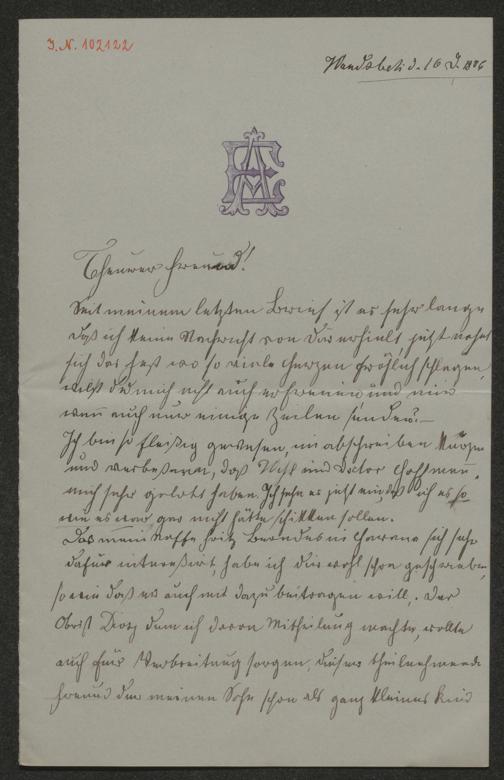 I.N. 102122
Wandsbek d. 16 D. 1886
AE
Theurer Freund!
Seit meinem letzten Brief ist es sehr lange
daß ich keine Nachricht von Dir erhielt, jetzt nahet
sich das Fest wo so viele Herzen fröhlich schlagen,
willst Du mich nicht auch erfreuen und mir
wenn auch nur einige Zeilen senden? —
Ich bin so fleißig gewesen, im abschreiben kürzen
und verbeßern, daß und Doctor Hoffmann,
mich sehr gelobt haben. Ich sehe es jetzt ein, daß ich es so
wie es war gar nicht hätte schikken sollen.
Das mein Neffe Fritz Berndes in Havana sich sehr
dafür interessirt, habe ich Dir wohl schon geschrieben,
so wie daß er auch mit dazu beitragen will. Der
Obrist dem ich davon Mittheilung machte, wollte
auch für Verbreitung sorgen, dieser theilnehmende
Freund der meinen Sohn schon als ganz kleines Kind